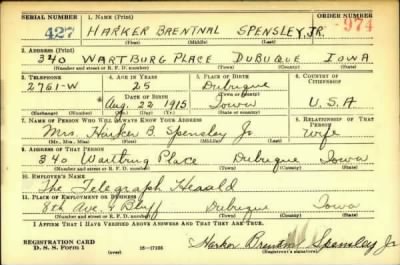 SERIAL NUMBER 1. NAME (Print) ORDER NUMBER
427 HARKER BRENTNAL SPENSLEY, JR. 974
(First) (Middle) (Last)
2. ADDRESS (Print)
340 WARTBURG PLACE DUBUQUE IOWA
(Number and street or R. F. D. number) (Town) (County) (State)
3. TELEPHONE 4. AGE IN YEARS 5. PLACE OF BIRTH 6. COUNTRY OF CITIZENSHIP
2761-W 25 Dubuque
DATE OF BIRTH (Town or county)
Aug. 22 1915 Iowa U.S.A
(Mo.) (Day) (Yr.) (State or country)
7. NAME OF PERSON WHO WILL ALWAYS KNOW YOUR ADDRESS 8. RELATIONSHIP OF THAT PERSON
Mrs. Harker B. Spensley Jr wife
(Mr., Mrs., Miss) (First) (Middle) (Last)
9. ADDRESS OF THAT PERSON
340 Wartburg Place Dubuque Iowa
(Number and street or R. F. D. number) (Town) (County) (State)
10. EMPLOYER'S NAME
The Telegraph Herald
11. PLACE OF EMPLOYMENT OR BUSINESS
8th Ave. & Bluff Dubuque Iowa
(Number and street or R. F. D. number) (Town) (County) (State)
I AFFIRM THAT I HAVE VERIFIED ABOVE ANSWERS AND THAT THEY ARE TRUE.
REGISTRATION CARD
D. S. S. Form 1 16—17105 Harker Brentnal Spensley Jr
(Registrant's signature)